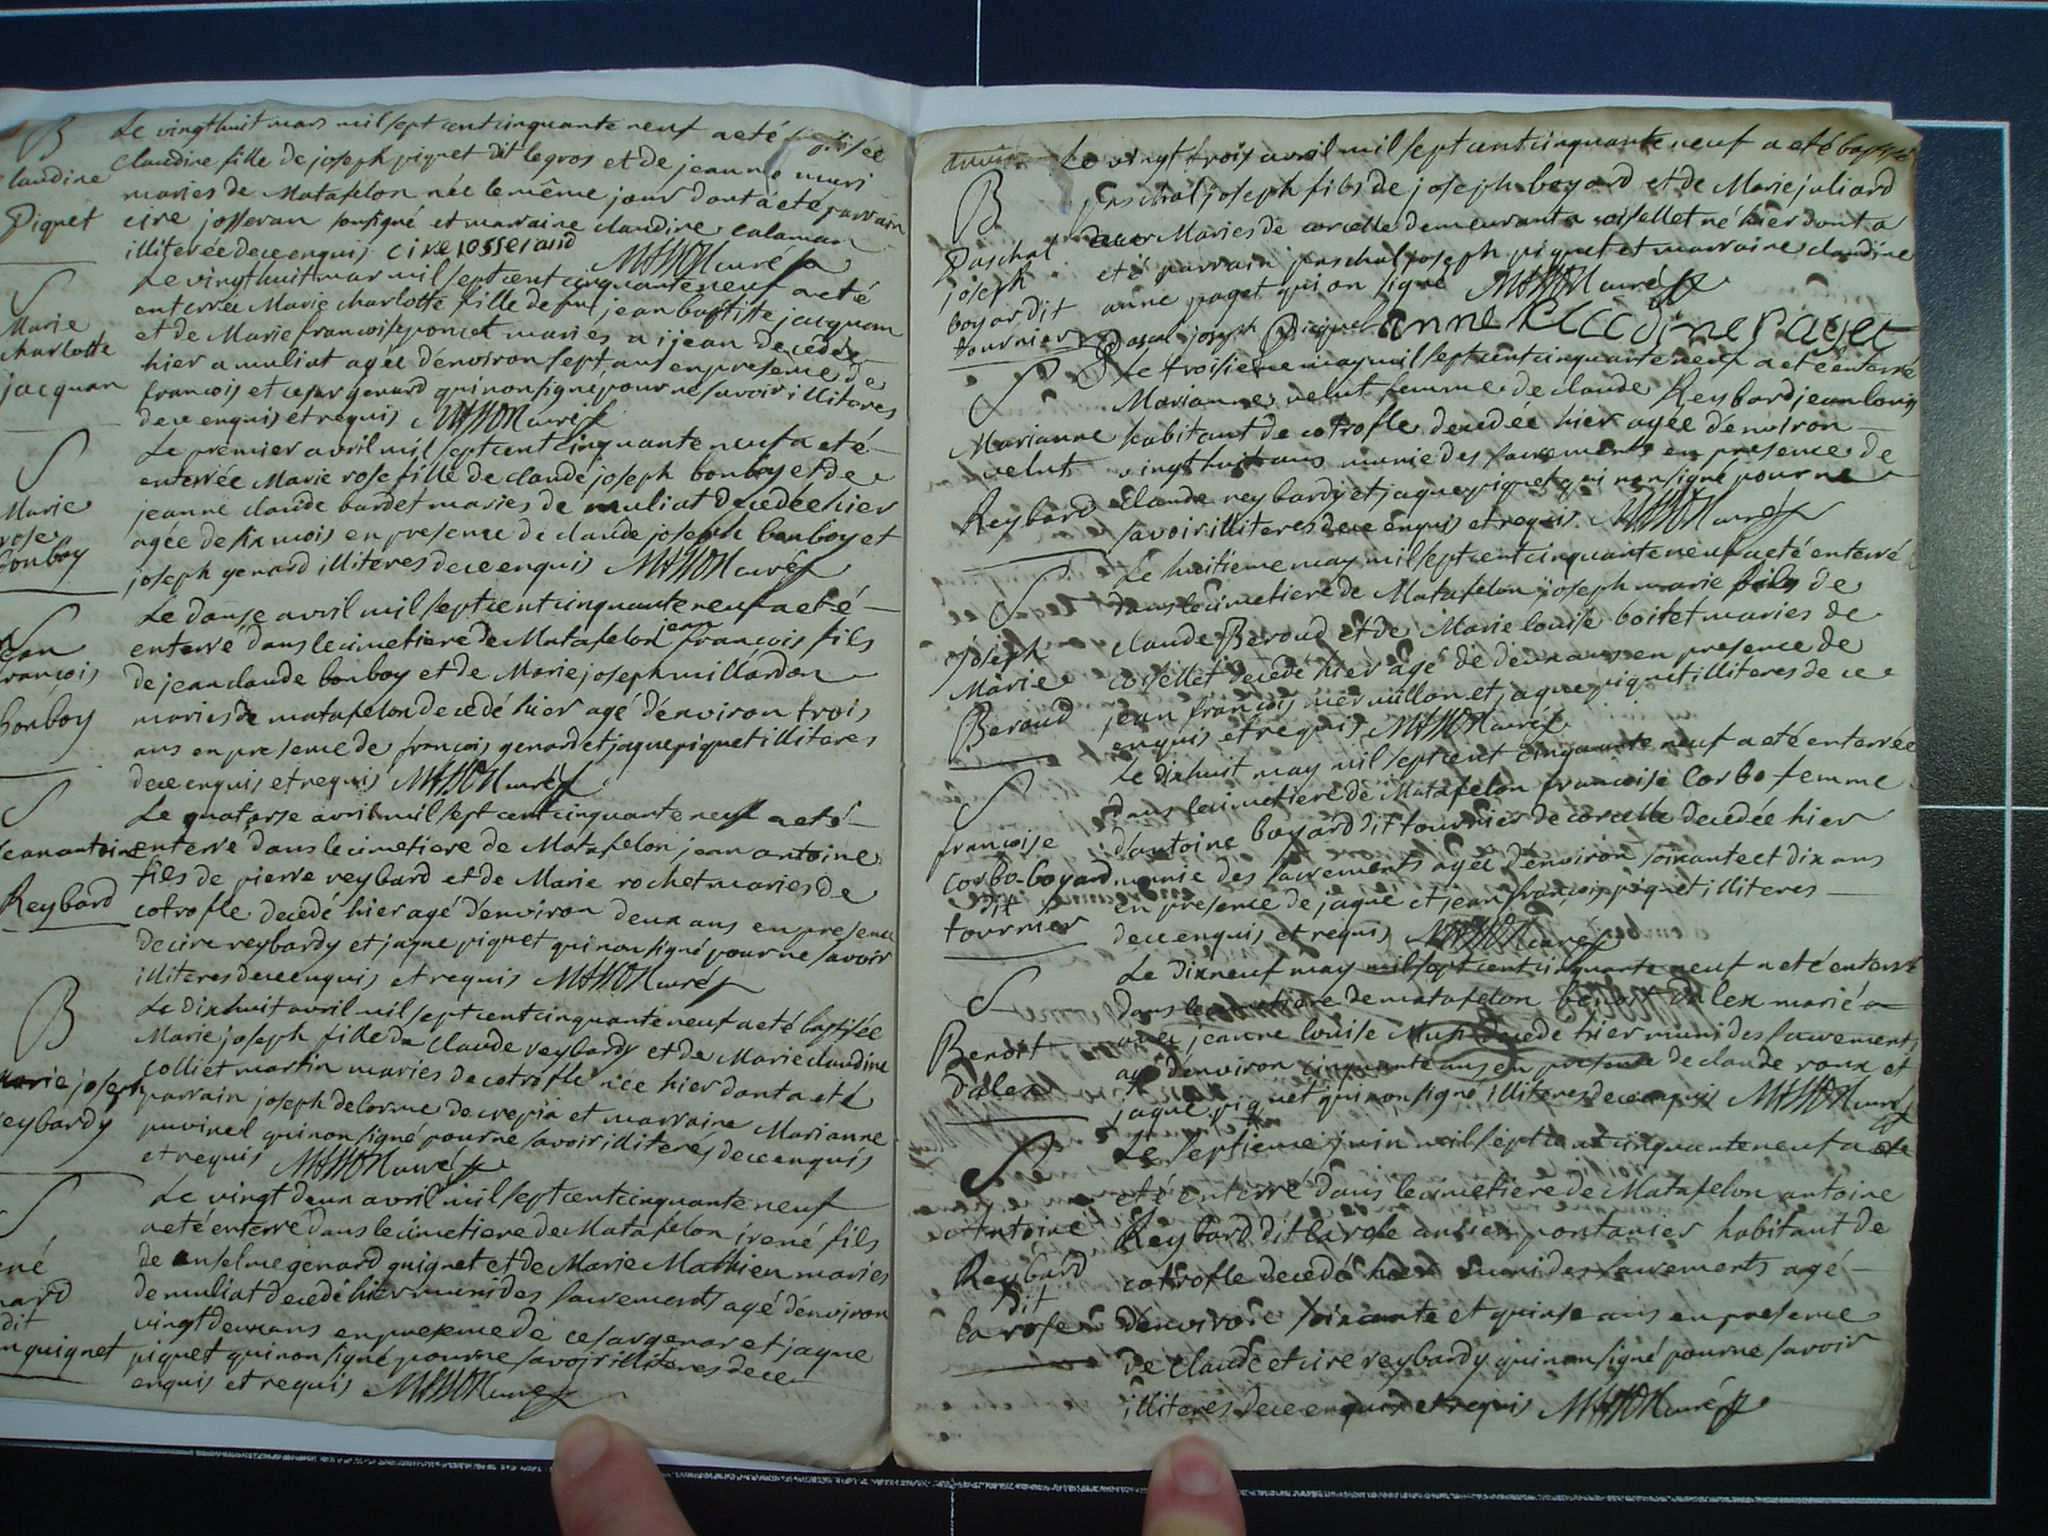 B
Claudine
Piquet
Le vingthuit mars mil sept cent cinquante neuf a eté baptisée
Claudine fille de joseph piquet dit legros et de jeanne
maries de Matafelon née le même jour dont a été parrain
cire josseran sousigné et marraine claudine calaman
illiterée de ce enquis cire josserand
MASSON curé
S
Marie
charlotte
jacquan
Le vingthuit mar mil sept cent cinquante neuf a eté
enterrée Marie charlotte fille de feu jean baptiste jacquan
et de Marie francoise poncet maries a ijean decedée
hier a muliat agée d'environ sept ans en presence de
francois et cesar genard qui n'on signé pour ne savoir illiteres
de ce enquis et requis MASSON curé
S
Marie
rose
bonboy
Le premier avril mil sept cent cinquante neuf a eté
enterrée Marie rose fille de claude joseph bonboy et de
jeanne claude bardet maries de muliat decedée hier
agée de six mois en presence de claude joseph bonboy et
joseph genard illiteres de ce enquis MASSON curé
S
jean
francois
bonboy
Le douse avril mil sept cent cinquante neuf a eté
enterré dans le cimetiere de Matafelon jean francois fils
de jean claude bonboy et de Marie joseph millardon
maries de matafelon decedé hier agé d'environ trois
ans en presence de francois genard et jaque piquet illiteres
de ce enquis et requis MASSON curé
S
jean antoine
Reybard
Le quatorse avril mil sept cent cinquante neuf a eté
enterré dans le cimetiere de Matafelon jean antoine
fils de pierre reybard et de Marie rochet maries de
cotrofle decedé hier agé d'environ deux ans en presence
de cire reybardy et jaque piquet qui n'on signé pour ne savoir
illiteres de ce enquis et requis MASSON curé
B
Marie joseph
reybardy
Le dixhuit avril mil sept cent cinquante neuf a eté baptisée
Marie joseph fille de claude reybardy et de Marie claudine
colliet martin maries de cotrofle née hier dont a eté
parrain joseph delorme de crepia et marraine Marianne
puvinel qui n'on signé pour ne savoir illiterés de ce enquis
et requis MASSON curé
S
irené
genard
dit
guignet
Le vingt deux avril mil sept cent cinquante neuf
a eté enterré dans le cimetiere de Matafelon irené fils
de anselme genard guignet et de Marie Mathieu maries
de muliat decedé hier muni des sacrements agé d'environ
vingt deux ans en presence de cesar genar et jaque
piquet qui n'on signé pour ne savoir illiteres de ce
enquis et requis MASSON curé
B
Paschal
joseph
boyar dit
tournier
Le vingt trois avril mil sept cent cinquante neuf a eté baptisé
paschal joseph fils de joseph boyard et de Marie juliard
Maries de corcelle demeurant a coisellet né hier dont a
eté parrain paschal joseph piquet et marraine claudine
anne paget qui on signé MASSON curé
Pascal joseph Piquet anne claudine Paget
S
Marianne
velut
Reybard
Le troisieme may mil sept cent cinquante neuf a eté enterré
Marianne velut femme de claude Reybard jean louis
habitant de cotrofle decedée hier agée d'environ
vingthuit ans munie des sacrements en presence de
claude reybardy et jaque piquet qui n'on signé pour ne
savoir illiteres de ce enquis et requis MASSON curé
S
joseph
Marie
Beroud
Le huitieme may mil sept cent cinquante neuf a eté enterré
dans le cimetiere de Matafelon joseph marie fils de
claude Beroud et de Marie louise boitet maries de
coisellet decedé hier agé de deux ans en presence de
jean francois niermillon et jaque piquet illiteres de ce
enquis et requis MASSON curé
S
francoise
corbo-boyard
dit
tournier
Le dixhuit may mil sept cent cinquante neuf a eté enterrée
dans le cimetiere de Matafelon francoise Corbo femme
d'antoine boyard dit tournier de corcelle decedée hier
munie des sacrements agée d'environ soixante et dix ans
en presence de jaque et jean francois piquet illiteres
de ce enquis et requis MASSON curé
S
Benoit
dalex
Le dixneuf may mil sept cent cinquante neuf a eté enterré
dans le cimetiere de matafelon benoit dalex marié
avec jeanne louise decedé hier muni des sacrements
agé d'environ cinquante ans en presence de claude roux et
jaque piquet qui n'on signé illiteres de ce enquis MASSON curé
S
Antoine
Reybard
dit
la rose
Le septieme juin mil sept cent cinquante neuf a
eté enterré dans le cimetiere de Matafelon antoine
Reybard dit la rose ansien pontanier habitant de
cotrofle decedé hier muni des sacrements agé
d'environ soixante et quinse ans en presence
de claude et cire reybardy qui n'on signé pour ne savoir
illiteres de ce enquis et requis MASSON curé